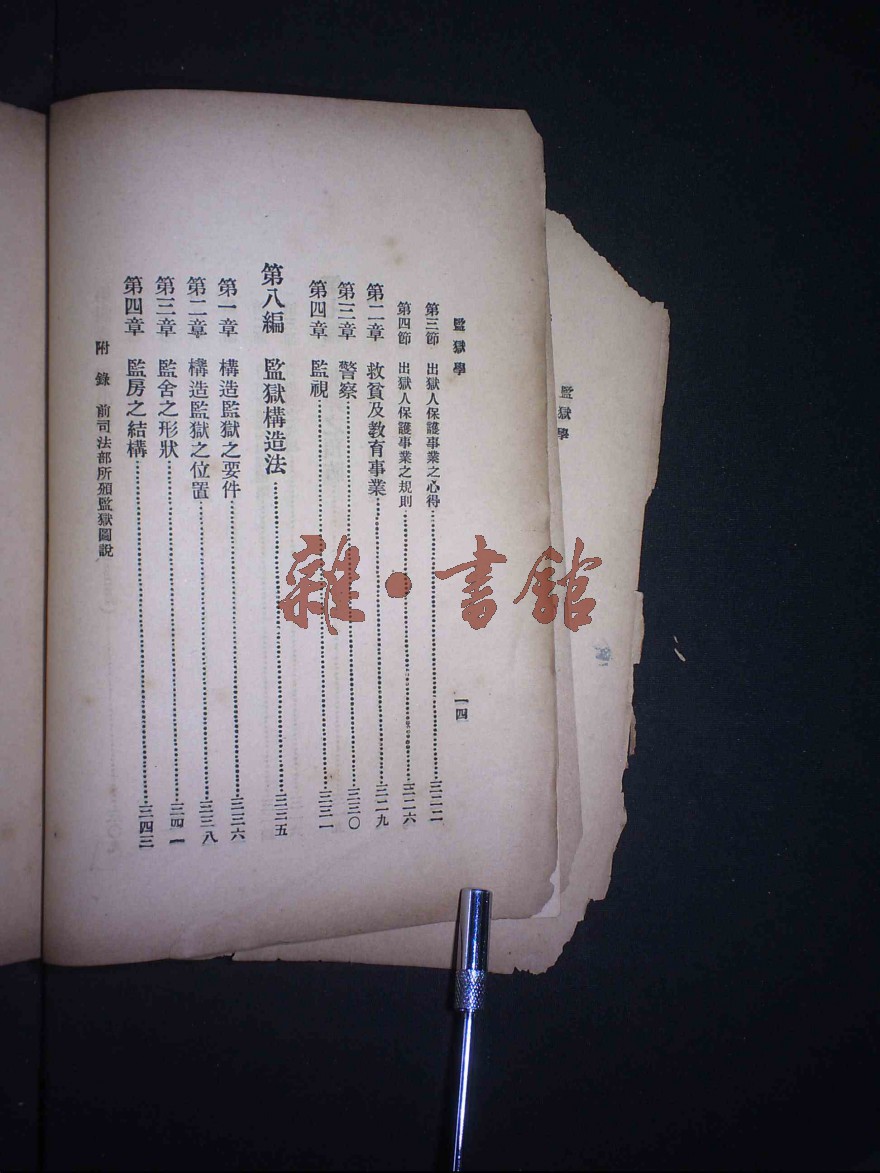 監獄學
一四
第三節 出獄人保護事業之心得……三二二
第四節 出獄人保護事業之規則……三二六
第二章 救貧及教育事業……三二九
第三章 警察……三三〇
第四章 監視……三三一
第八編 監獄構造法……三三五
第一章 構造監獄之要件……三三六
第二章 構造監獄之位置……三三八
第三章 監舍之形狀……三四一
第四章 監房之結構……三四三
附錄 前司法部所頒監獄圖說
監獄學
雜·書館